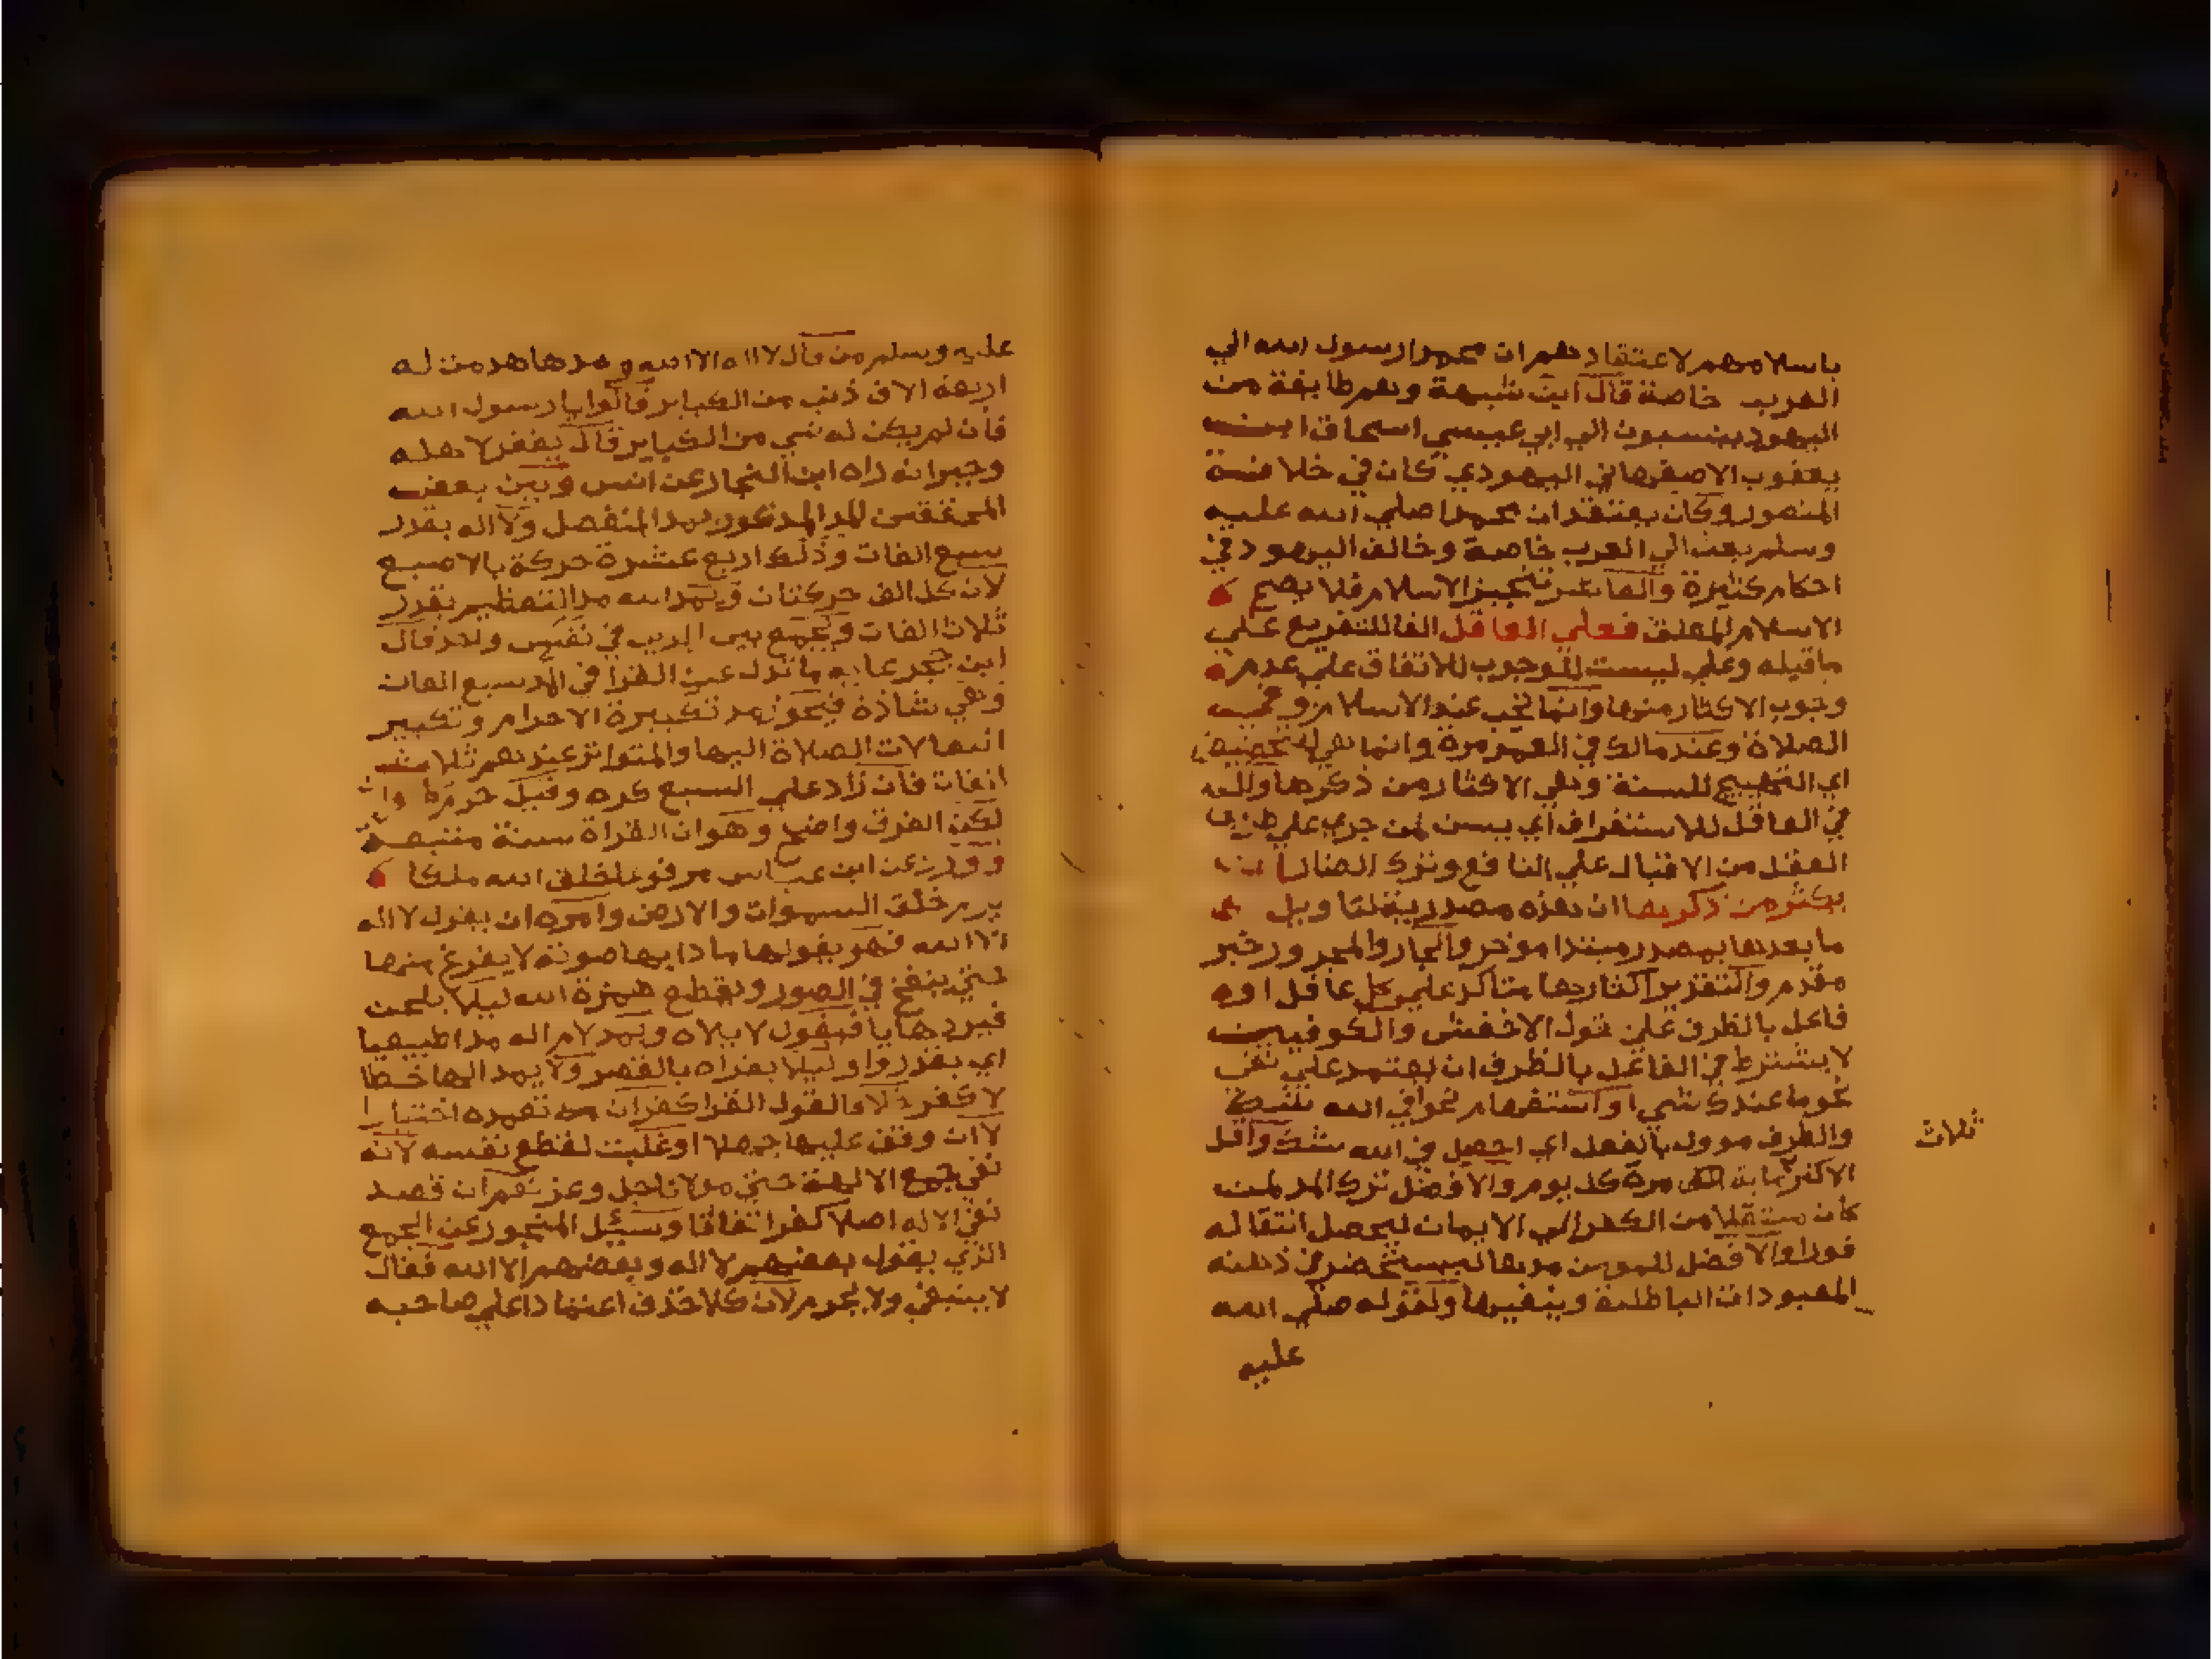 باسلامهم لاعتقادهم ان محمدا رسول الله الي
العرب خاصة قال ابن شبهة وهم طايفة من
اليهود ينسبون الي ابي عيسي اسحاق ابن
يعقوب الاصفهاني اليهودي كان في خلافة
المنصور وكان يعتقد ان محمدا صلي الله عليه
وسلم بعث الي العرب خاصة وخالف اليهود في
احكام كثيرة والعاشر تنجيز الاسلام فلا يصح
الاسلام المعلق فعلي العاقل الفا للتفريع علي
ما قبله وعلي ليست للوجوب للاتفاق علي عدم
وجوب الاكثار منها وانما تجب عند الاسلام وفي
الصلاة وعند مالك في العمر مرة وانما هي للتحضيض
اي التهييج للسنة وهي الاكثار من ذكرها وال
في العاقل للاستغراق اي يسن لمن جري علي
العقل من الاقبال علي النافع وترك الضار ان
يكثر من ذكرها ان هذه مصدرية
ما بعدها بمصدر مبتدا موخر والجار والمجرور خبر
مقدم والتقدير اكثارها متاكد علي كل عاقل او
فاعل بالظرف علي قول الاخفش والكوفيين
لا يشترط في الفاعل بالظرف ان يعتمد علي نفي
نحو ما عندك شي او استفهام نحو افي الله شك
والظرف موول بالفعل اي احصل في الله شك واقل
الاكثر ثلاث ماية مرة كل يوم والافضل ترك المد لمن
كان منتقلا من الكفر الي الايمان ليحصل انتقاله
فورا والافضل للمومن مدها ليستحضر في ذهنه
المعبودات الباطلة وينفيها ولقوله صلي الله
عليه
عليه وسلم من قال لا اله الا الله ومدها هدمت له
اربعة الاف ذنب من الكباير قالوا يا رسول الله
فان لم يكن له شي من الكباير قال يغفر لاهله
وجيرانه رواه ابن النجار عن انس وبين بعض
المحققين المد المذكور بمد المنفصل ولا اله بقدر
سبع الفات وذلك اربع عشرة حركة بالاصبع
لان كل الف حركتان ويمد الله مد التعظيم بقدر
ثلاث الفات ويجمع بين المدين في نفس واحد قال
ابن حجر غاية ما نزل عن القرا في المد سبع الفات
وهي شاذة فيجوز مد تكبيرة الاحرام وتكبير
انتقالات الصلاة اليها والمتواتر عندهم ثلاث
الفات فان زاد علي السبع كره وقيل حرم
لكن الفرق واضح وهو ان القراة سنة متبعة
وورد عن ابن عباس مرفوعا خلق الله ملكا
يوم خلق السموات والارض وامره ان يقول لا اله
الا الله فهو يقولها مادا بها صوته لا يفرغ منها
حتي ينفخ في الصور وتقطع همزة اله ليلا يلحن
فيردها يا فيقول لا يلاه ويمد لام اله مدا طبيعيا
اي بقدر وا وليلا يقراه بالقصر ولا يمد الها خطا
لا كفر خلافا لقول القرا كفر ان تعمده اختيارا
لا ان وقف عليها جهلا او غلبت لقطع نفسه لانه
نفي جميع الالهة حتي مولانا جل وعز نعم ان قصد
نفي الاله اصلا كفر اتفاقا وسيل المنجور عن الجمع
الذي يقول بعضهم لا اله وبعضهم الا الله فقال
لا ينبغي ولا يحرم لان كلا حذف اعتمادا علي صاحبه
ثلاث